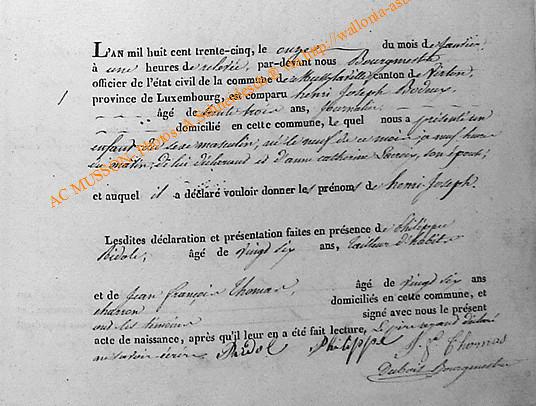 L'AN mil huit cent trente-cinq, le onze du mois de Janvier
à une heures de relevée, par-devant nous Bourgmestre
officier de l'état civil de la commune de canton de Virton,
province de Luxembourg, est comparu henri Joseph
âgé de trente trois ans, Journalier
domicilié en cette commune, le quel nous a présenté un
enfant du sexe masculin, né le neuf de ce mois, a neuf heures
du matin, de lui déclarant et d'anne catherine son épouse,
et auquel il a déclaré vouloir donner les prénoms de henri Joseph.
Lesdites déclaration et présentation faites en présence de Philippe
âgé de vingt six ans, tailleur d'habits
et de Jean françois Thomas, âgé de vingt six ans
charron domiciliés en cette commune, et
ont les témoins signé avec nous le présent
acte de naissance, après qu'il leur en a été fait lecture, Le père ayant déclaré
ne savoir écrire Philippe J. F. Thomas
Dubois Bourgmestre
AC MUSSON, Photos A. http://wallonia-as